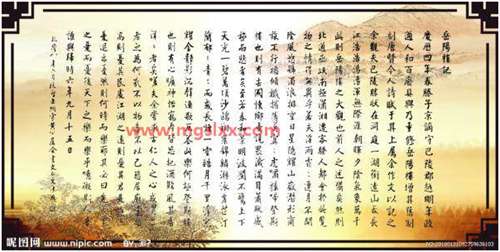 岳陽樓記
慶曆四年春滕子京謫守巴陵郡越明年政
通人和百廢具興乃重修岳陽樓增其舊制
刻唐賢今人詩賦于其上屬余作文以記之
余觀夫巴陵勝狀在洞庭一湖銜遠山吞長
江浩浩湯湯橫無際涯朝暉夕陰氣象萬千
此則岳陽樓之大觀也前人之述備矣然則
北通巫峽南極瀟湘遷客騷人多會于此覽
物之情得無異乎若夫霪雨霏霏連月不開
陰風怒號濁浪排空日星隱耀山岳潛形商
旅不行檣傾楫摧薄暮冥冥虎嘯猿啼登斯
樓也則有去國懷鄉憂讒畏譏滿目蕭然感
極而悲者矣至若春和景明波瀾不驚上下
天光一碧萬頃沙鷗翔集錦鱗游泳岸芷汀
蘭郁郁青青而或長煙一空皓月千里浮光
躍金靜影沉璧漁歌互答此樂何極登斯樓
也則有心曠神怡寵辱偕忘把酒臨風其喜
洋洋者矣嗟夫予嘗求古仁人之心或異二
者之為何哉不以物喜不以己悲居廟堂之
高則憂其民處江湖之遠則憂其君是進亦
憂退亦憂然則何時而樂耶其必曰先天下
之憂而憂後天下之樂而樂乎噫微斯人吾
誰與歸時六年九月十五日
www.mgslxx.com
昵图网
www.nipic.com